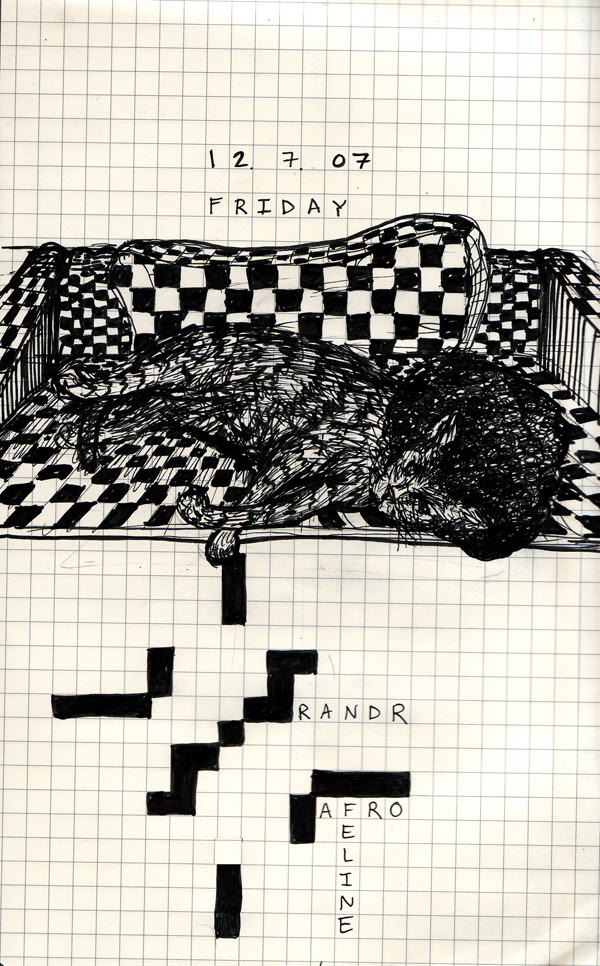 12. 7. 07
FRIDAY
RANDR
AFRO
FELINE